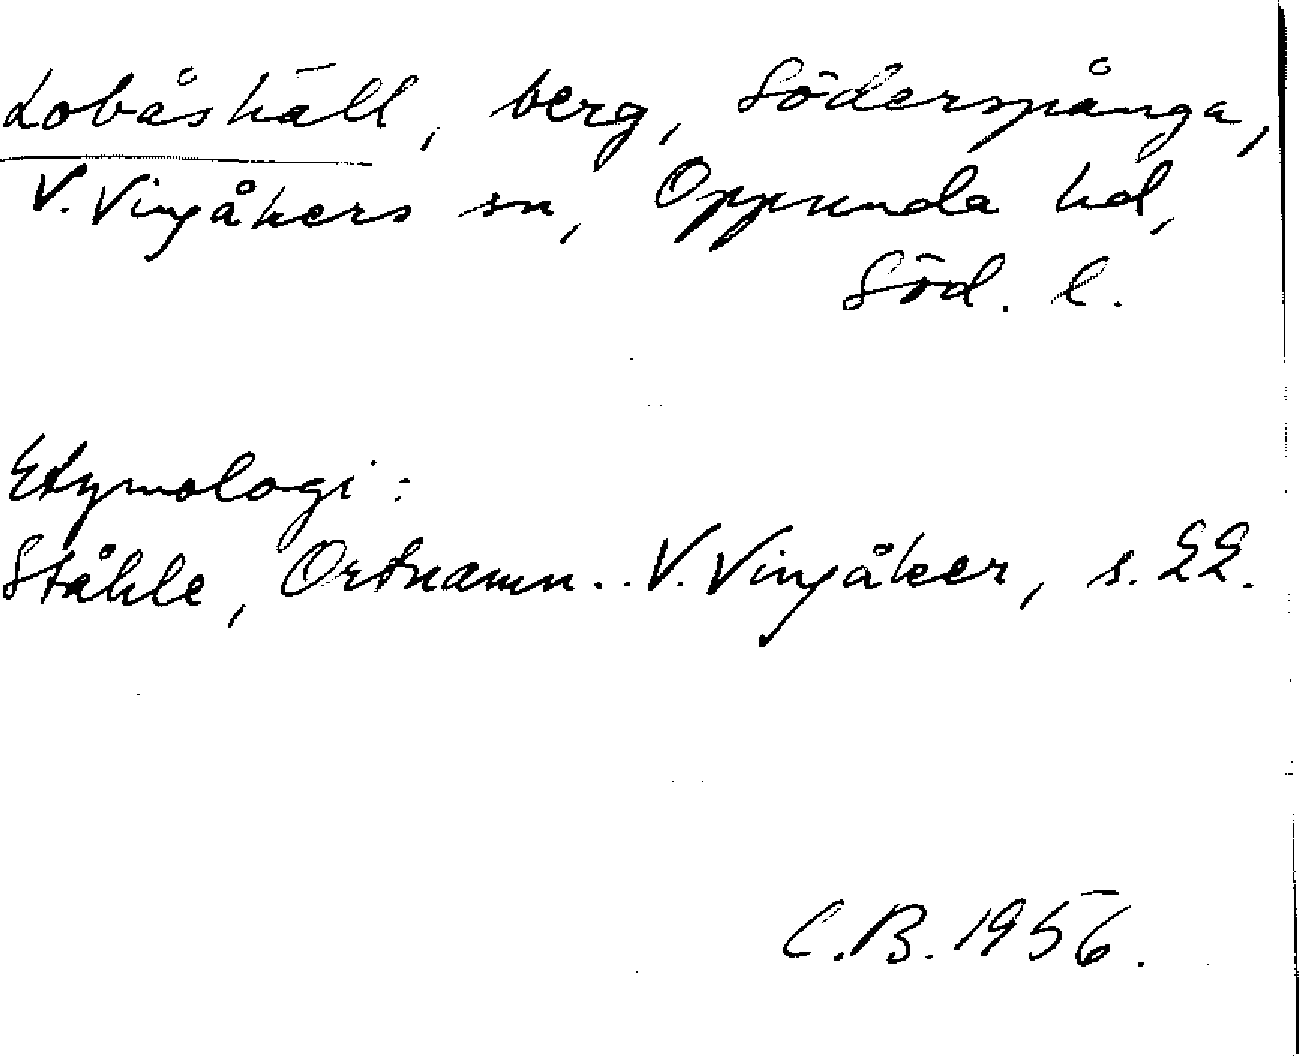 Lobåshäll, berg, Söderspånga,
V. Vingåkers sn, Oppunda hd,
Söd. l.
Etymologi:
Ståhle, Ortnamn.. V. Vingåker, s. 22.
C.B. 1956.